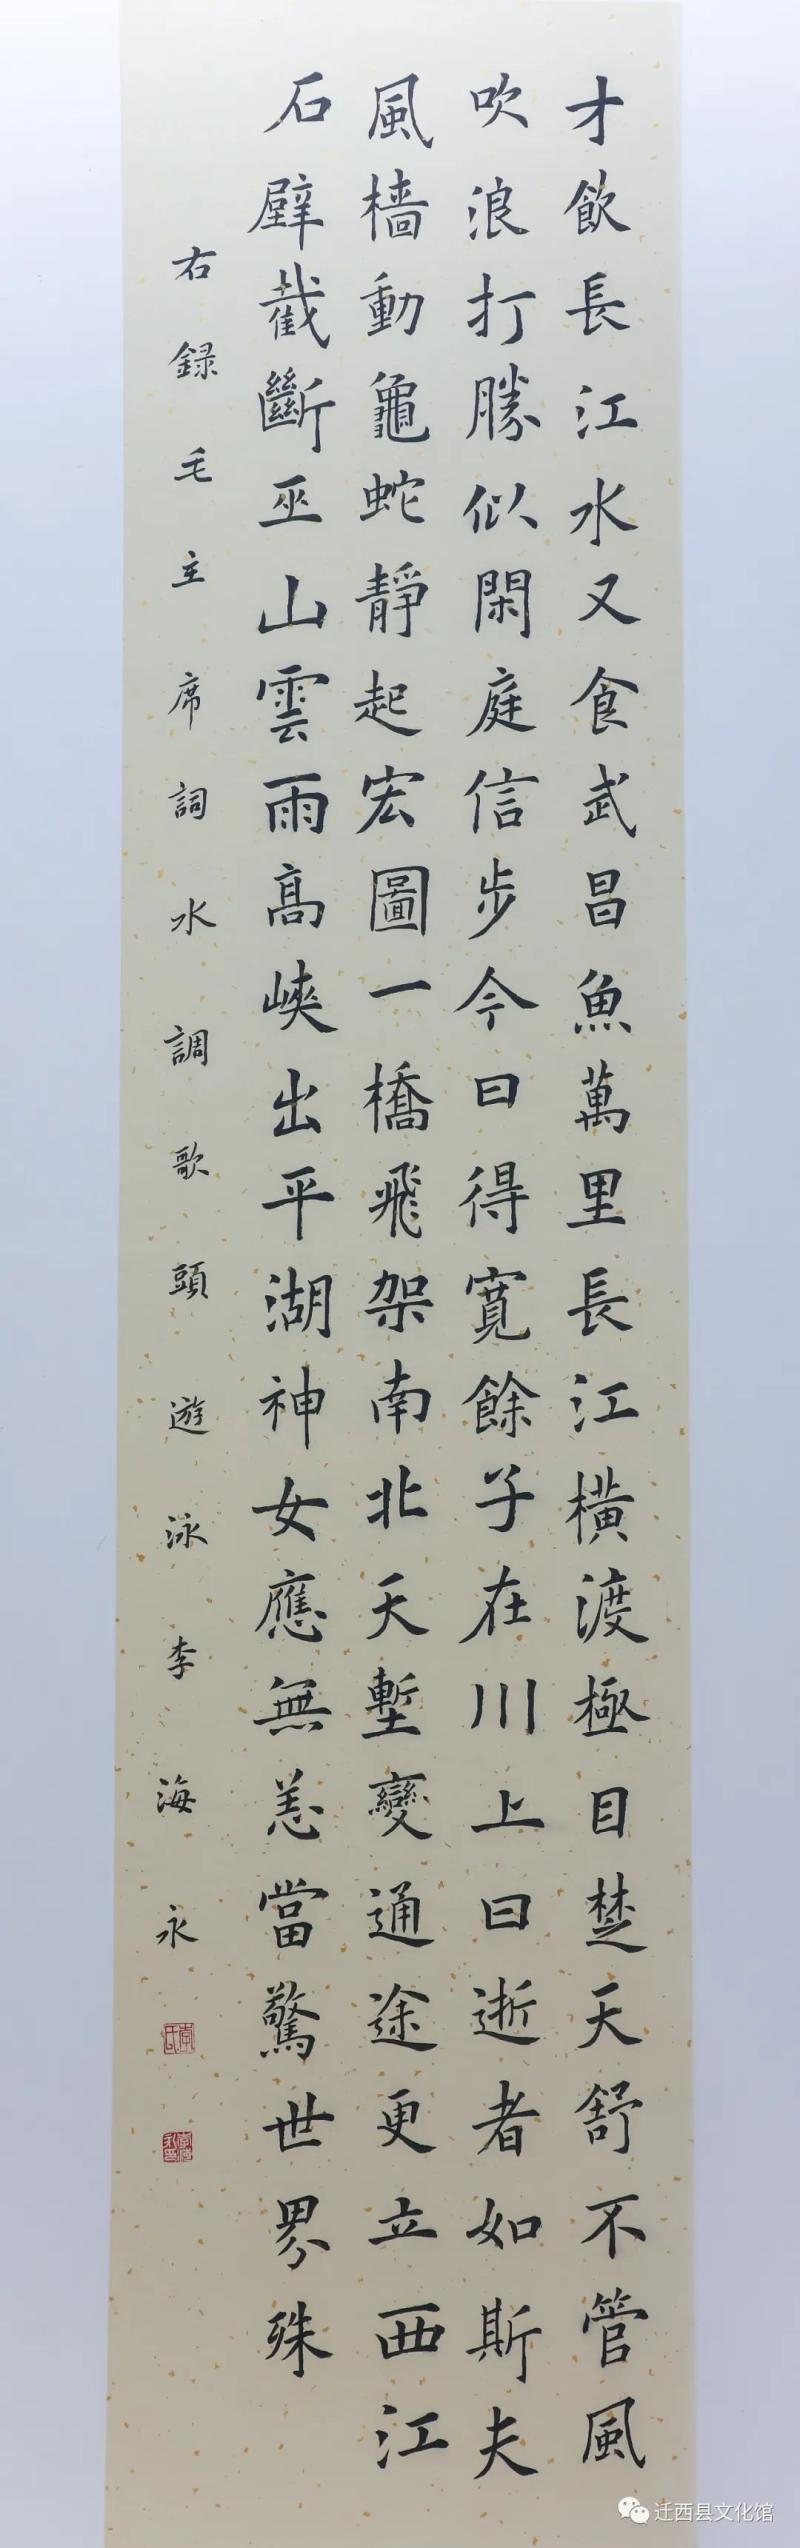 才飲長江水又食武昌魚萬里長江橫渡極目楚天舒不管風
吹浪打勝似閑庭信步今日得寬餘子在川上曰逝者如斯夫
風檣動龜蛇靜起宏圖一橋飛架南北天塹變通途更立西江
石壁截斷巫山雲雨高峽出平湖神女應無恙當驚世界殊
右録毛主席詞水調歌頭遊泳李海永
迁西县文化馆